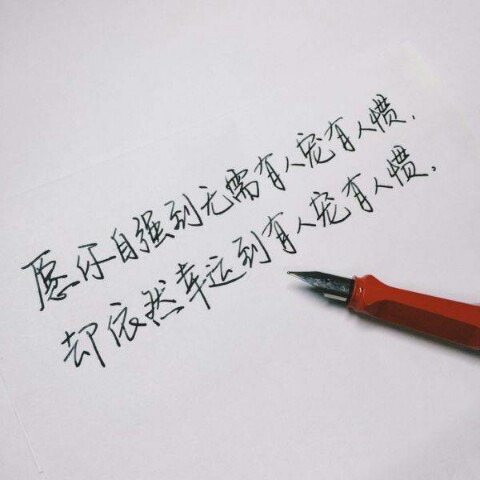 愿你自强到无需有人宠有人惯,
却依然幸运到有人宠有人惯。